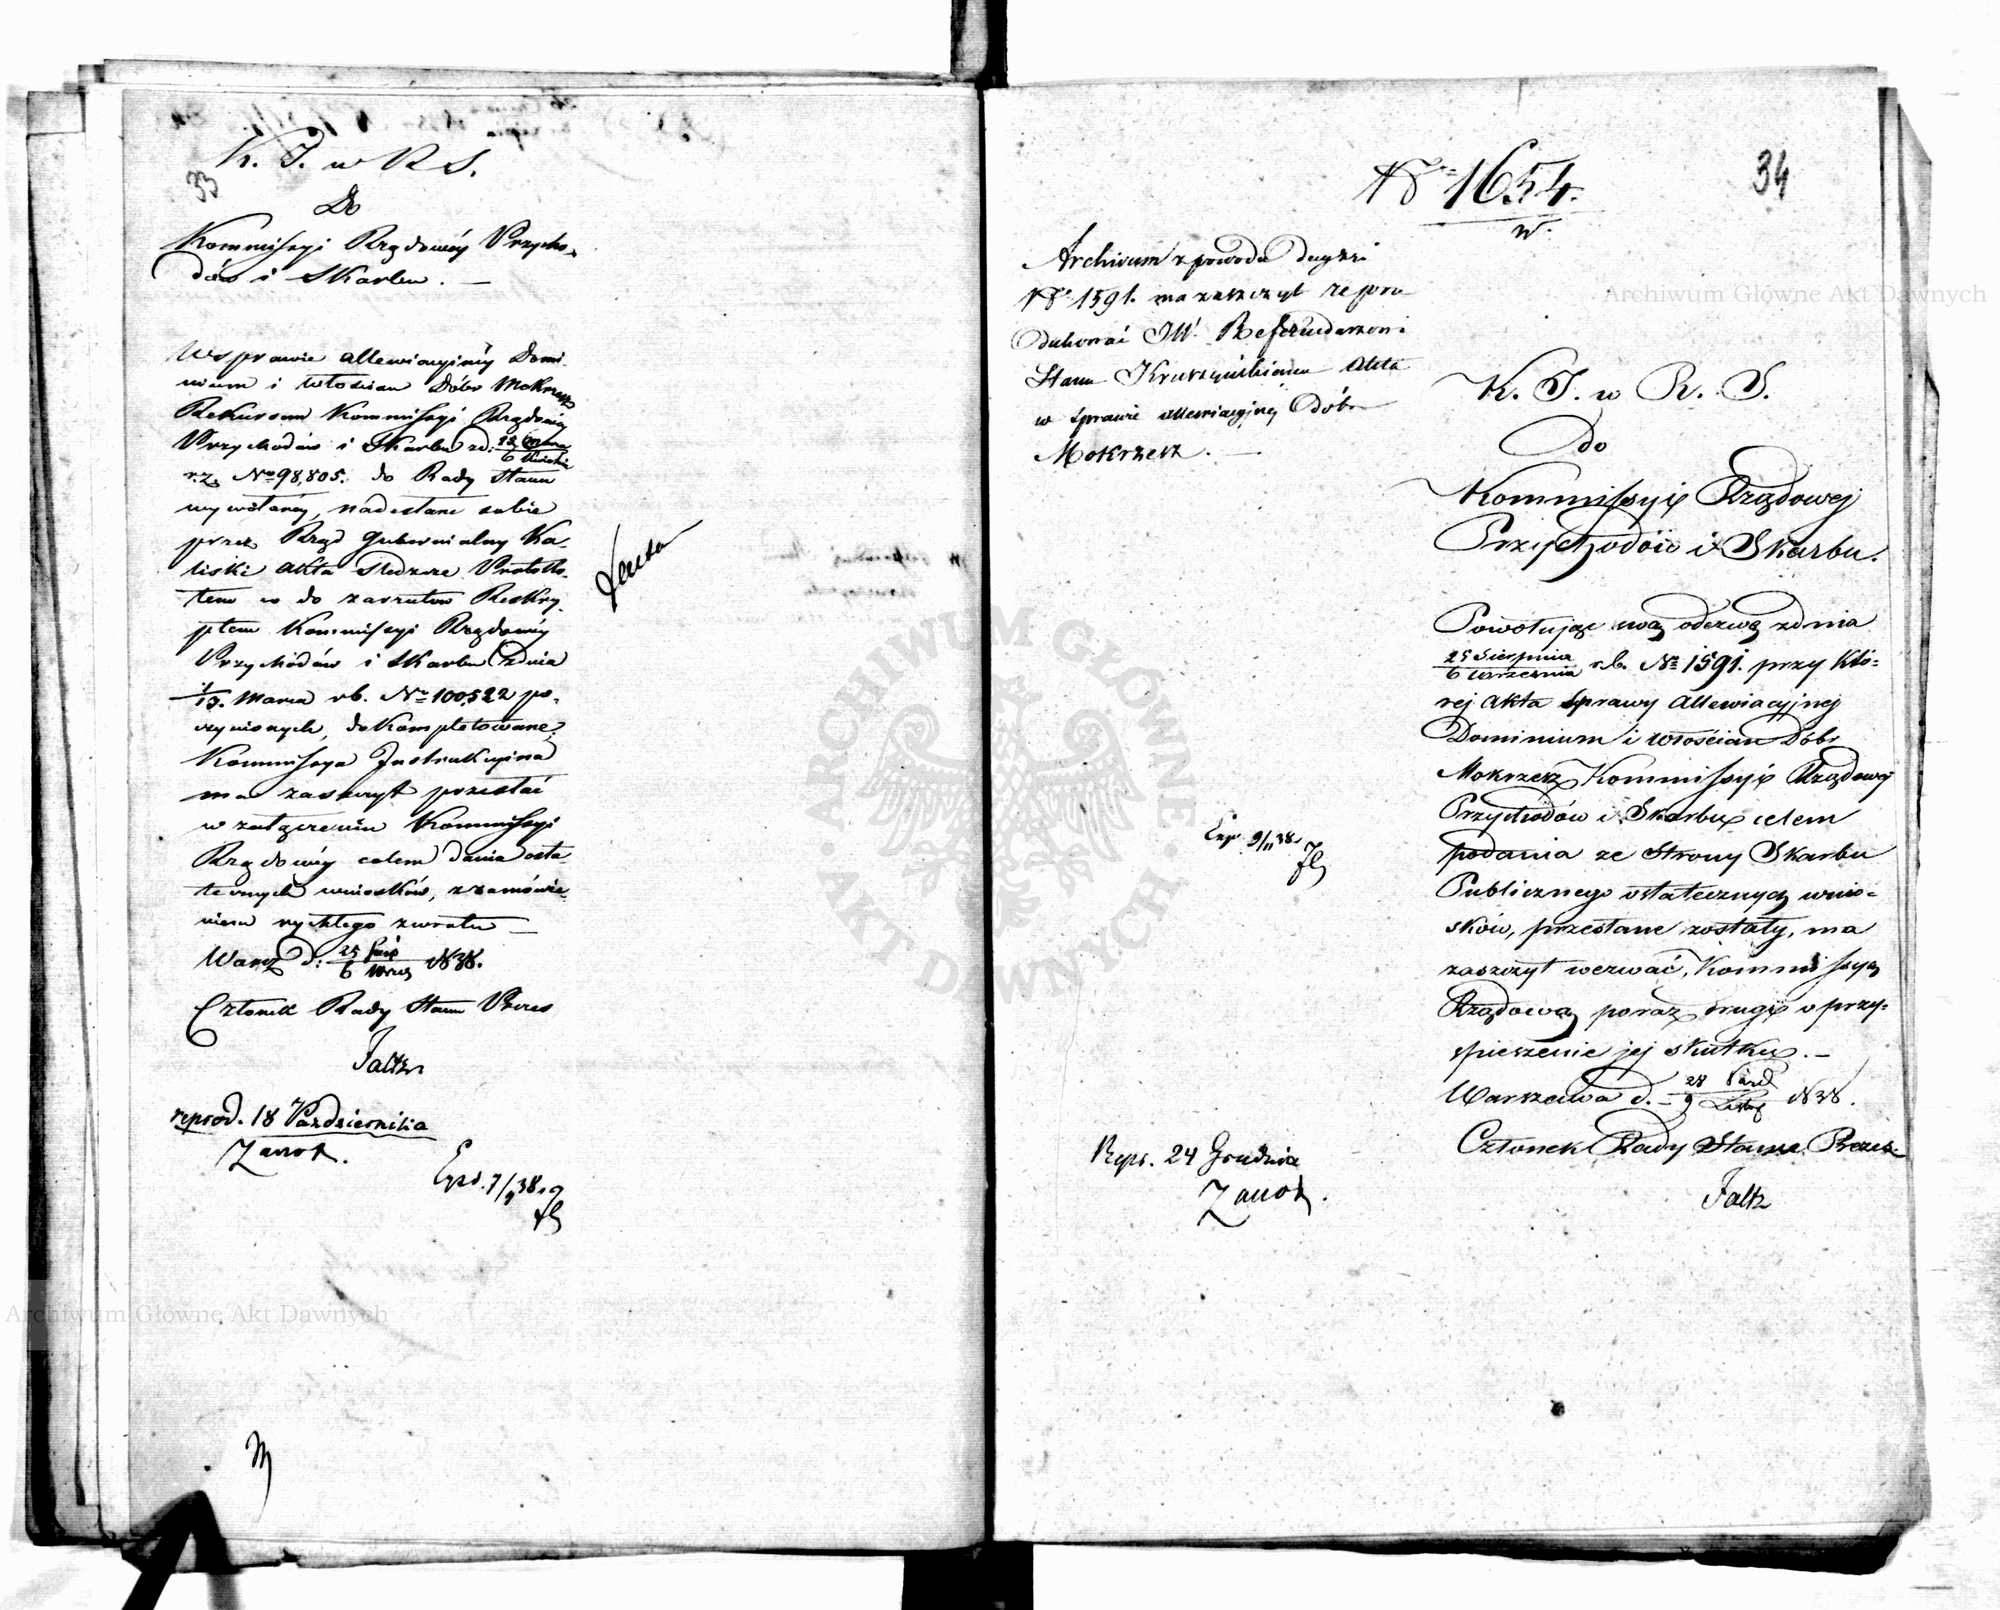 33
K. I. w R. S.
Do
Kommissyi Rządowéy Przycho-
dów i Skarbu. —
W sprawie allewiacyjnéy Domi-
nium i włościan Dóbr Mokrzesz
Rekursem Kommissyi Rządowéy
Przychodów i Skarbu zd:
r.z. No 98,805. do Rady Stanu
wywołanéy, nadesłane sobie
przez Rząd Gubernialny Ka-
liski Akta śledcze Protokó-
łem co do zarzutów Reskry-
ptem Kommissyi Rządowéy
Przychodów i Skarbu zdnia
1/13. Marca rb. No 100,522 po-
czynionych, dokompletowane,
Kommissya Instrukcyina
ma zaszczyt przesłać
w załączeniu Kommissyi
Rządowéy celem dania osta-
tecznych wniosków, z zamówie-
niem rychłego zwrotu —
Warsz d: 25 Sierp / 6 Wrześ 1838.
Członek Rady Stanu Prezes
Faltz
reprod. 18 Października
Zawok.
Exp. 7/9 38.
34
No 1654.
w.
Archiwum z powodu decyzii
No 1591. ma zaszczyt repro-
dukować JW. Referendarzowi
Stanu Kruszyńskiemu Akta
w sprawie allewiacyjnej Dóbr
Mokrzesz. —
Exp. 9/11 38.
Repr. 24 Grudnia
Zawok.
K. I. w R. S.
do
Kommissyi Rządowej
Przychodów i Skarbu.
Powołując swą odezwę zdnia
25 Sierpnia / 6 Września r.b. No 1591. przy któ-
rej Akta sprawy Allewiacyjnej
Dominium i włościan Dóbr
Mokrzesz Kommissyi Rządowej
Przychodów i Skarbu celem
podania ze strony Skarbu
Publicznego ostatecznych wnio-
sków, przesłane zostały, ma
zaszczyt wezwać, Kommissyą
Rządową poraz drugi o przy-
spieszenie jej skutku. —
Warszawa d. 28 Paźd / 9 Listop 1838.
Członek Rady Stanu Prezes
Faltz
Archiwum Główne Akt Dawnych
ARCHIWUM GŁÓWNE · AKT DAWNYCH ·
Archiwum Główne Akt Dawnych